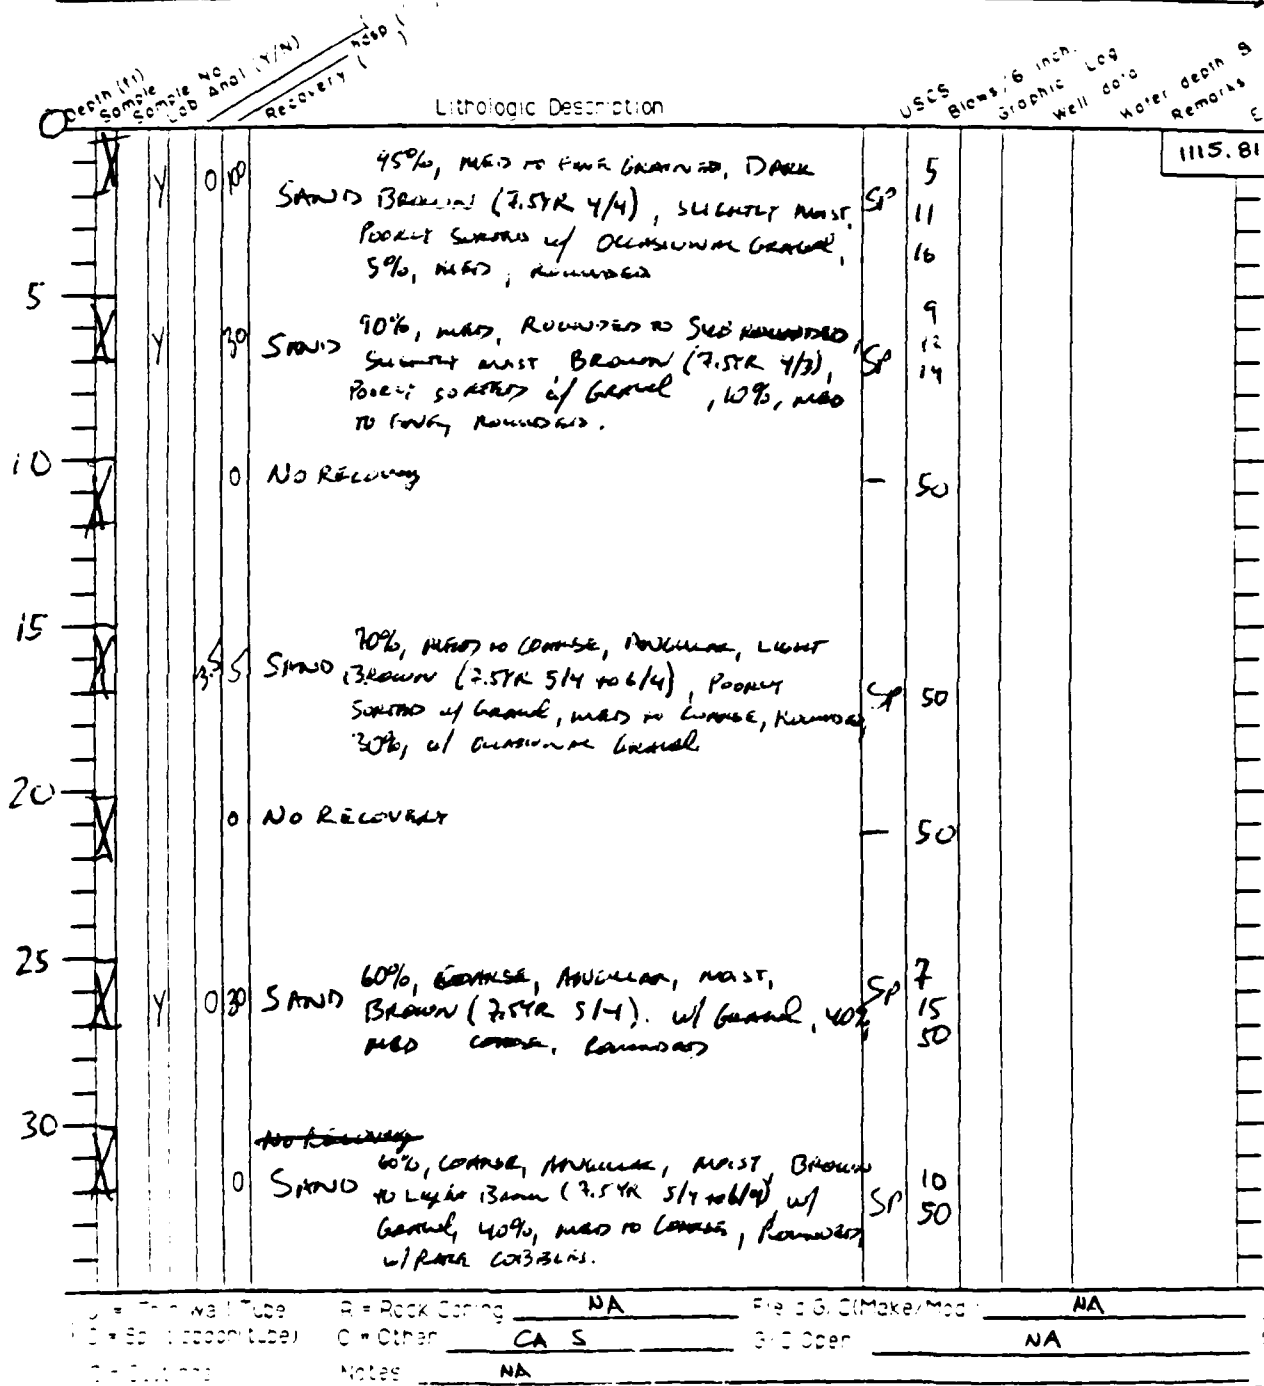 Depth (ft)
Sample
Sample No
Lab Anal (Y/N)
Recovery ( )
Lithologic Description
USCS
Blows/6 inch.
Graphic Log
Well data
Water depth &
Remarks
E
0
1115.81
Y 0 100 95%, MED TO FINE GRAINED, DARK 5
SAND BROWN (7.5YR 4/4), SLIGHTLY MOIST, SP 11
POORLY SORTED w/ OCCASIONAL GRAVEL, 16
5%, MED, ROUNDED
5
Y 30 SAND 90%, MED, ROUNDED TO SUB ROUNDED, 9
SLIGHTLY MOIST BROWN (7.5YR 4/3), SP 12
POORLY SORTED w/ GRAVEL, 10%, MED 14
TO FINE, ROUNDED.
10
0 NO RECOVERY - 50
15
3.5 5 SAND 70%, MED TO COARSE, ANGULAR, LIGHT
BROWN (7.5YR 5/4 TO 6/4), POORLY SP 50
SORTED w/ GRAVEL, MED TO COARSE, ROUNDED,
30%, w/ OCCASIONAL GRAVEL
20
0 NO RECOVERY - 50
25
Y 0 30 SAND 60%, COARSE, ANGULAR, MOIST, SP 7
BROWN (7.5YR 5/4). w/ GRAVEL, 40%, 15
MED COARSE, ROUNDED 50
30
NO RECOVERY
60%, COARSE, ANGULAR, MOIST, BROWN
0 SAND TO LIGHT BROWN (7.5YR 5/4 TO 6/4) w/ SP 10
GRAVEL, 40%, MED TO COARSE, ROUNDED, 50
w/ RARE COBBLES.
= Thin Wall Tube R = Rock Coring NA Field G/C(Make/Mod NA
= Split spoon(tube) O = Other CA S G/C Oper NA
= Cuttings Notes NA